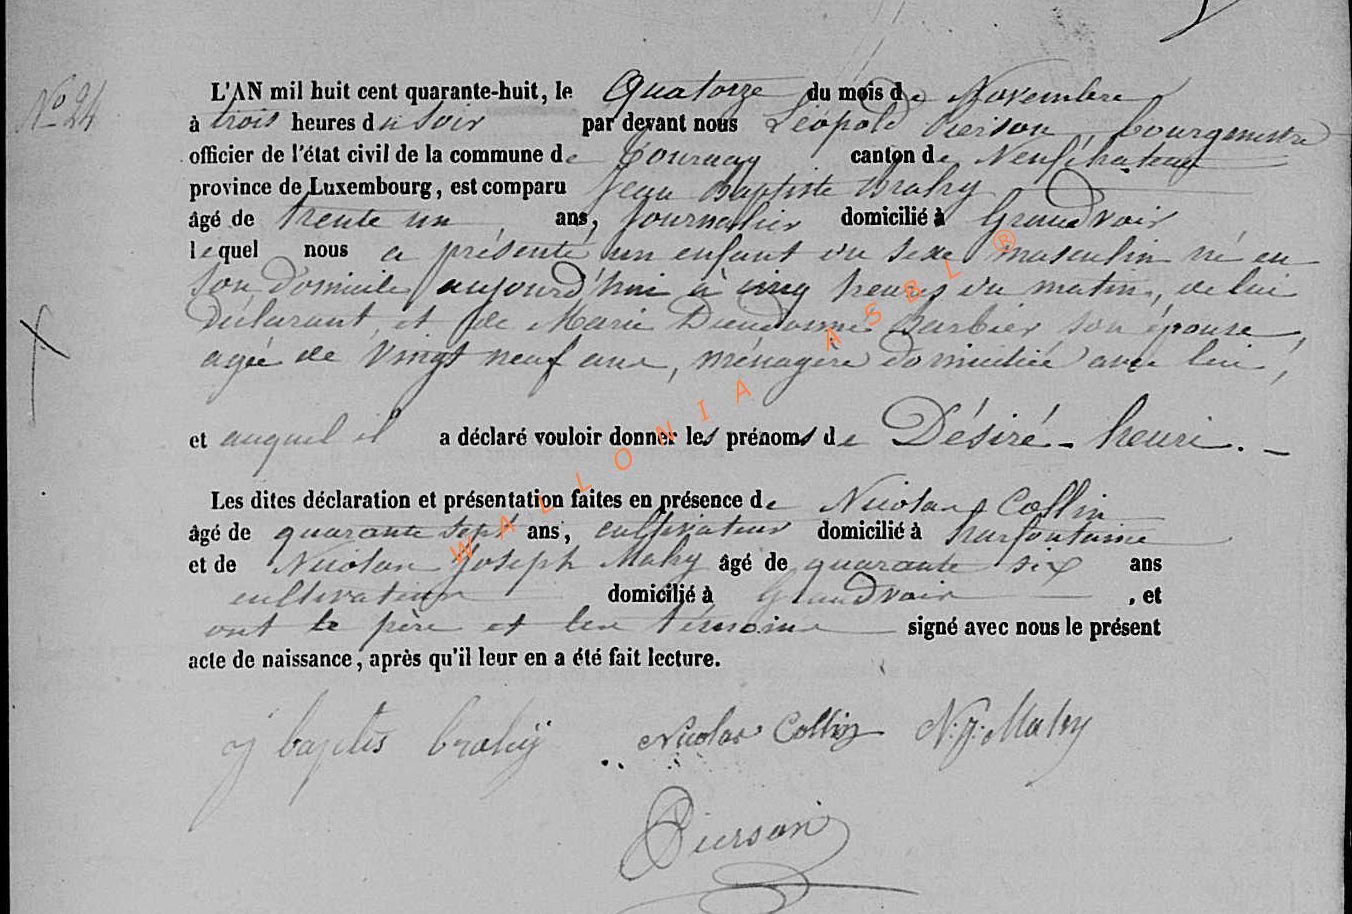 No 24
L'AN mil huit cent quarante-huit, le Quatorze du mois de Novembre
à trois heures du soir par devant nous Léopold Pierson, bourgmestre
officier de l'état civil de la commune de Tournay canton de Neufchateau
province de Luxembourg, est comparu Jean Baptiste Brahy
âgé de trente un ans, journalier domicilié à Grandvoir
lequel nous a présenté un enfant du sexe masculin né en
son domicile aujourd'hui à cinq heures du matin, de lui
déclarant, et de Marie Dieudonné Barbier son épouse,
agée de vingt neuf ans, ménagère domiciliée avec lui,
et auquel il a déclaré vouloir donner les prénoms de Désiré - henri. -
Les dites déclaration et présentation faites en présence de Nicolas Collin
âgé de quarante sept ans, cultivateur domicilié à harfontaine
et de Nicolas Joseph Mahy âgé de quarante six ans
cultivateur domicilié à Grandvoir, et
ont le père et les témoins signé avec nous le présent
acte de naissance, après qu'il leur en a été fait lecture.
j baptis brahy Nicolas Collin N. J. Mahy
Pierson
WALLONIA ASBL ®